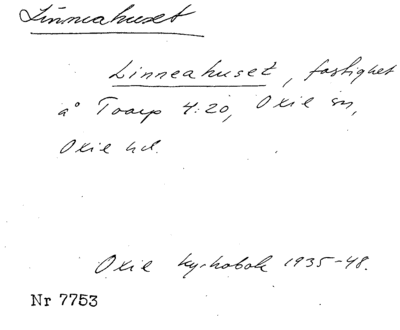 Linneahuset
Linneahuset, fastighet
å Toarp 4:20, Oxie sn,
Oxie hd.
Oxie kyrkobok 1935-48.
Nr 7753